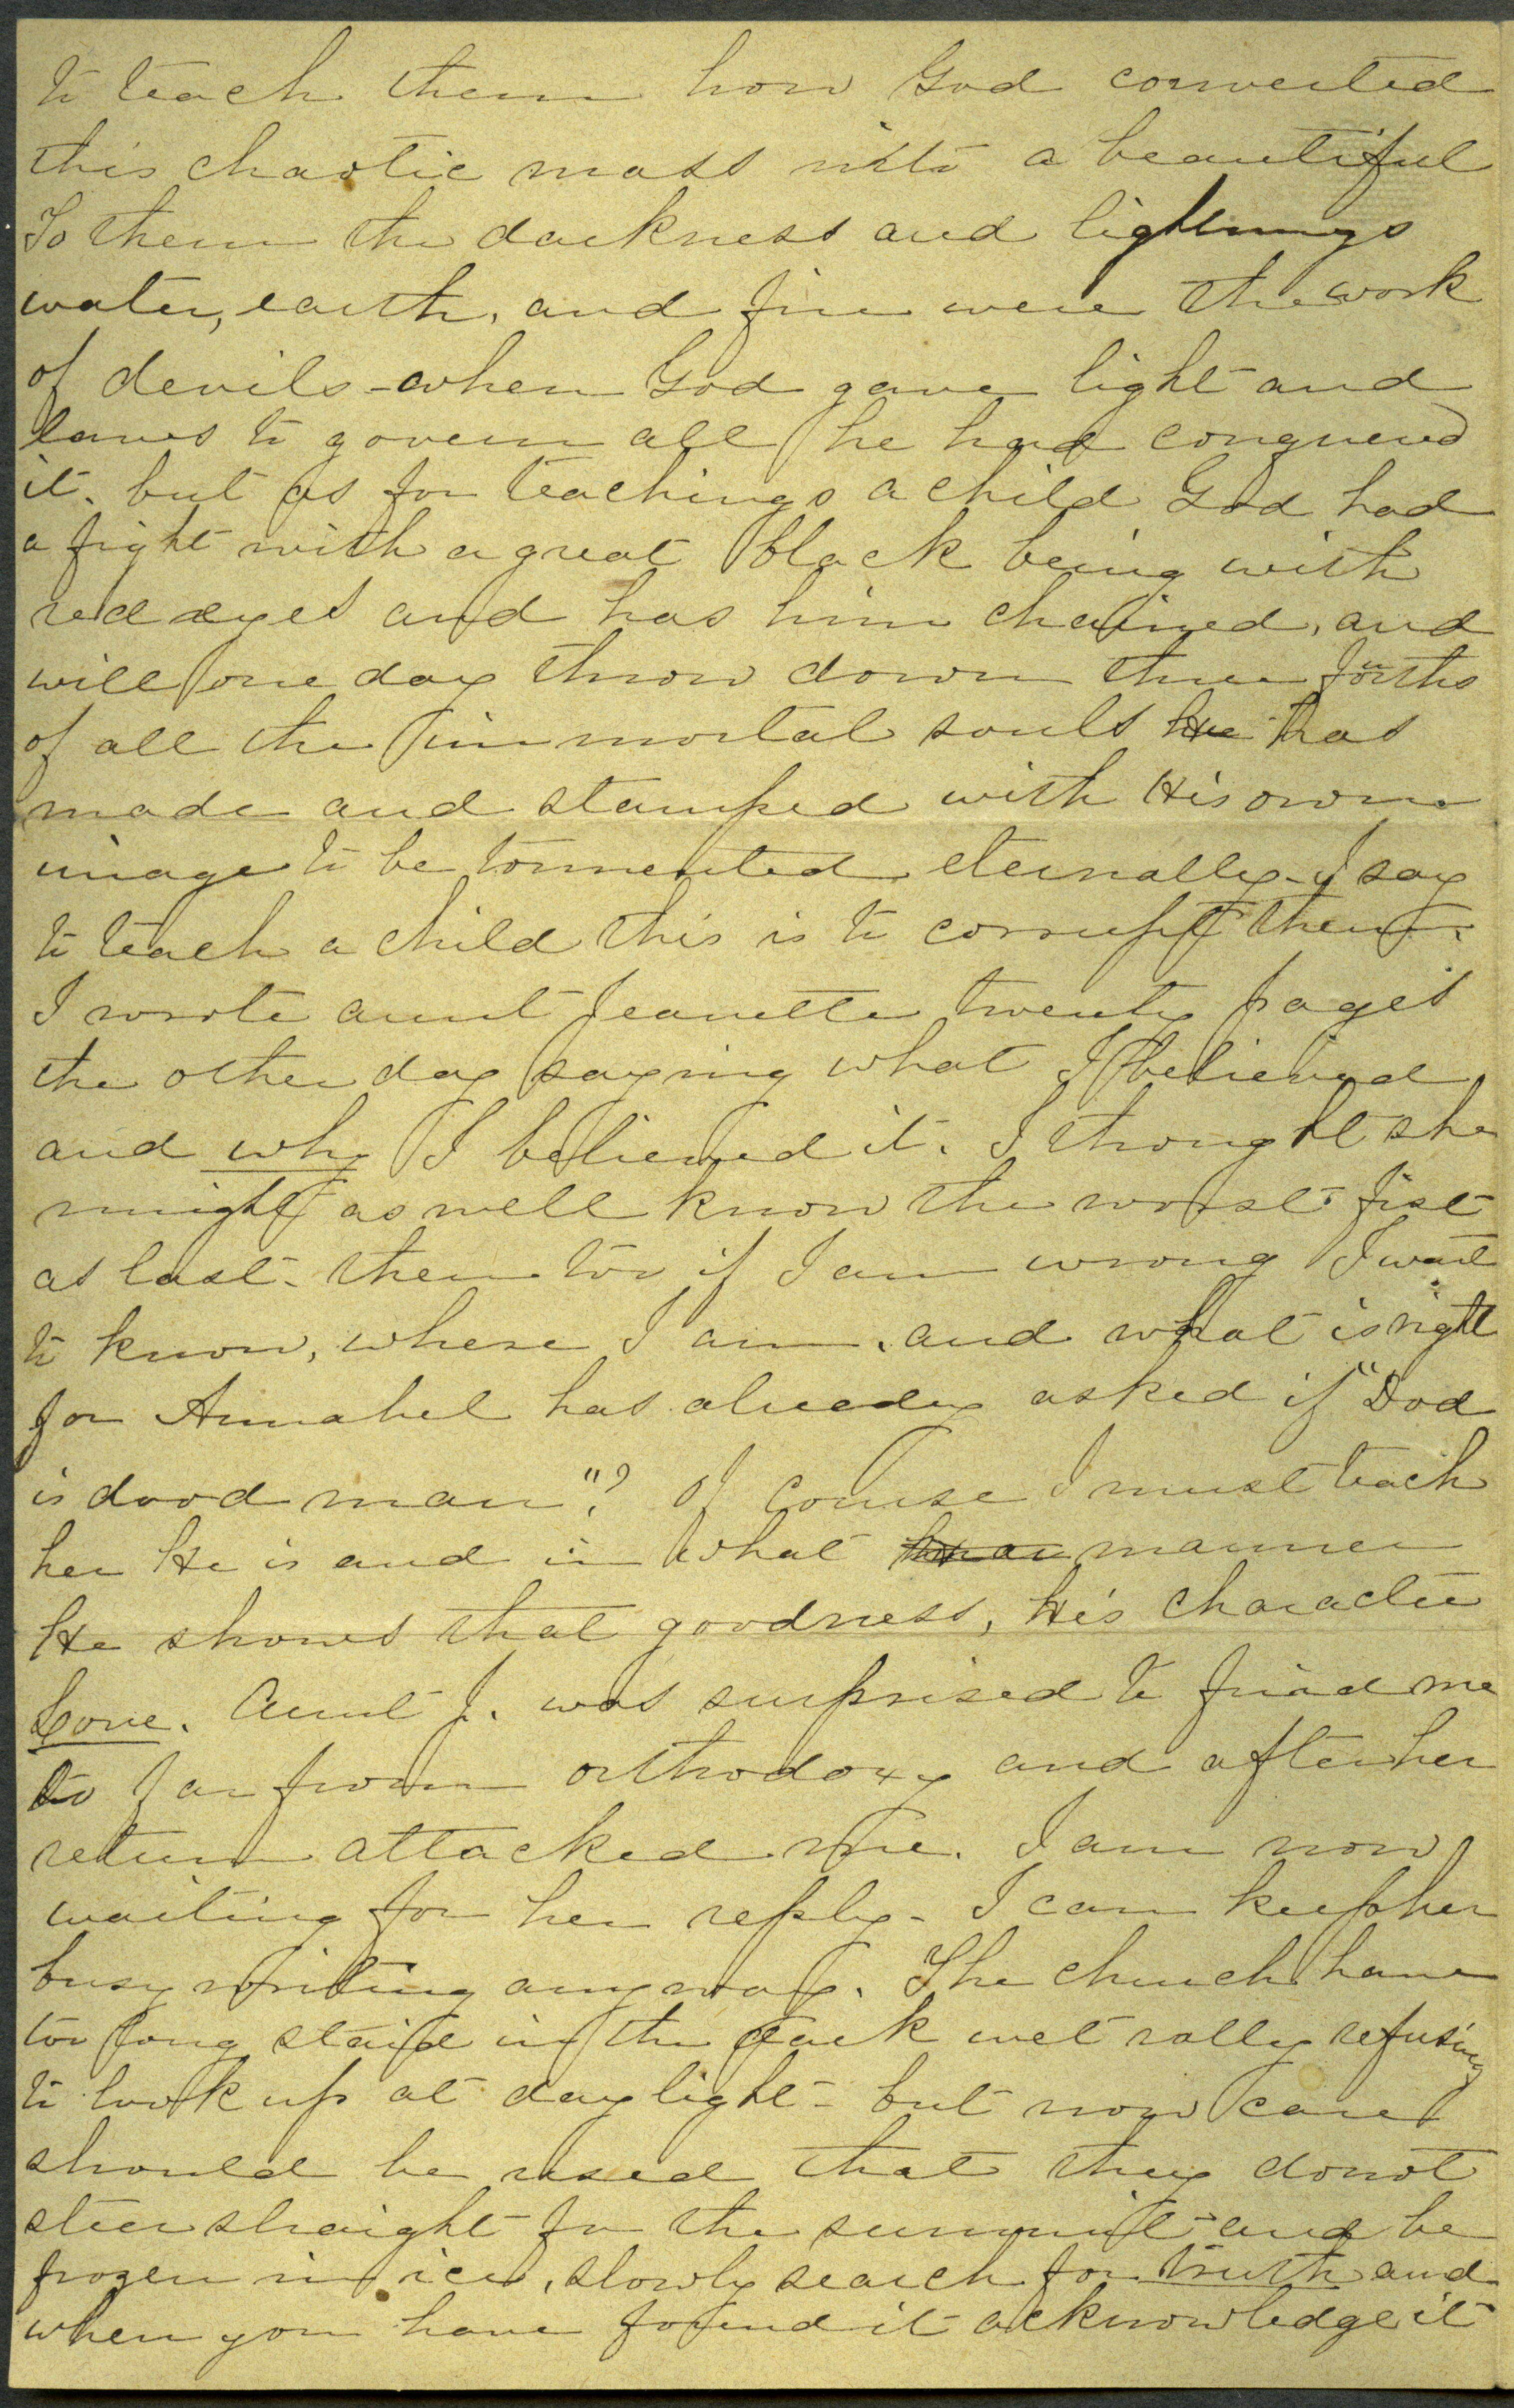 to teach them how God converted
this chaotic mass into a beautiful
To them the darkness and lightnings
water, earth, and fire were the work
of devils - when God gave light and
laws to govern all he had conquered
it. but as for teachings a child God had
a fight with a great black being with
red eyes and has him chained, and
will one day throw down three forths
of all the immortal souls He has
made and stamped with His own
image to be tormented eternally - I say
to teach a child this is to corrupt them.
I wrote aunt Jeanette twenty pages
the other day saying what I believed
and why I believed it. I thought she
might as well know the worst first
as last - then too if I am wrong I want
to know, where I am, and what is right
for Annabel has already asked if "Dod
is dood man"? Of course I must teach
her He is and in what manner
He shows that goodness, His character
Love. Aunt J. was surprised to find me
so far from orthodoxy and after her
return attacked me. I am now
waiting for her reply - I can keep her
busy writing anyway. The church have
too long staid in the dark wet vally refusing
to look up at daylight - but now care
should be used that they donot
steer straight for the summit and be
frozen in ice, slowly search for truth and
when you have found it acknowledge it